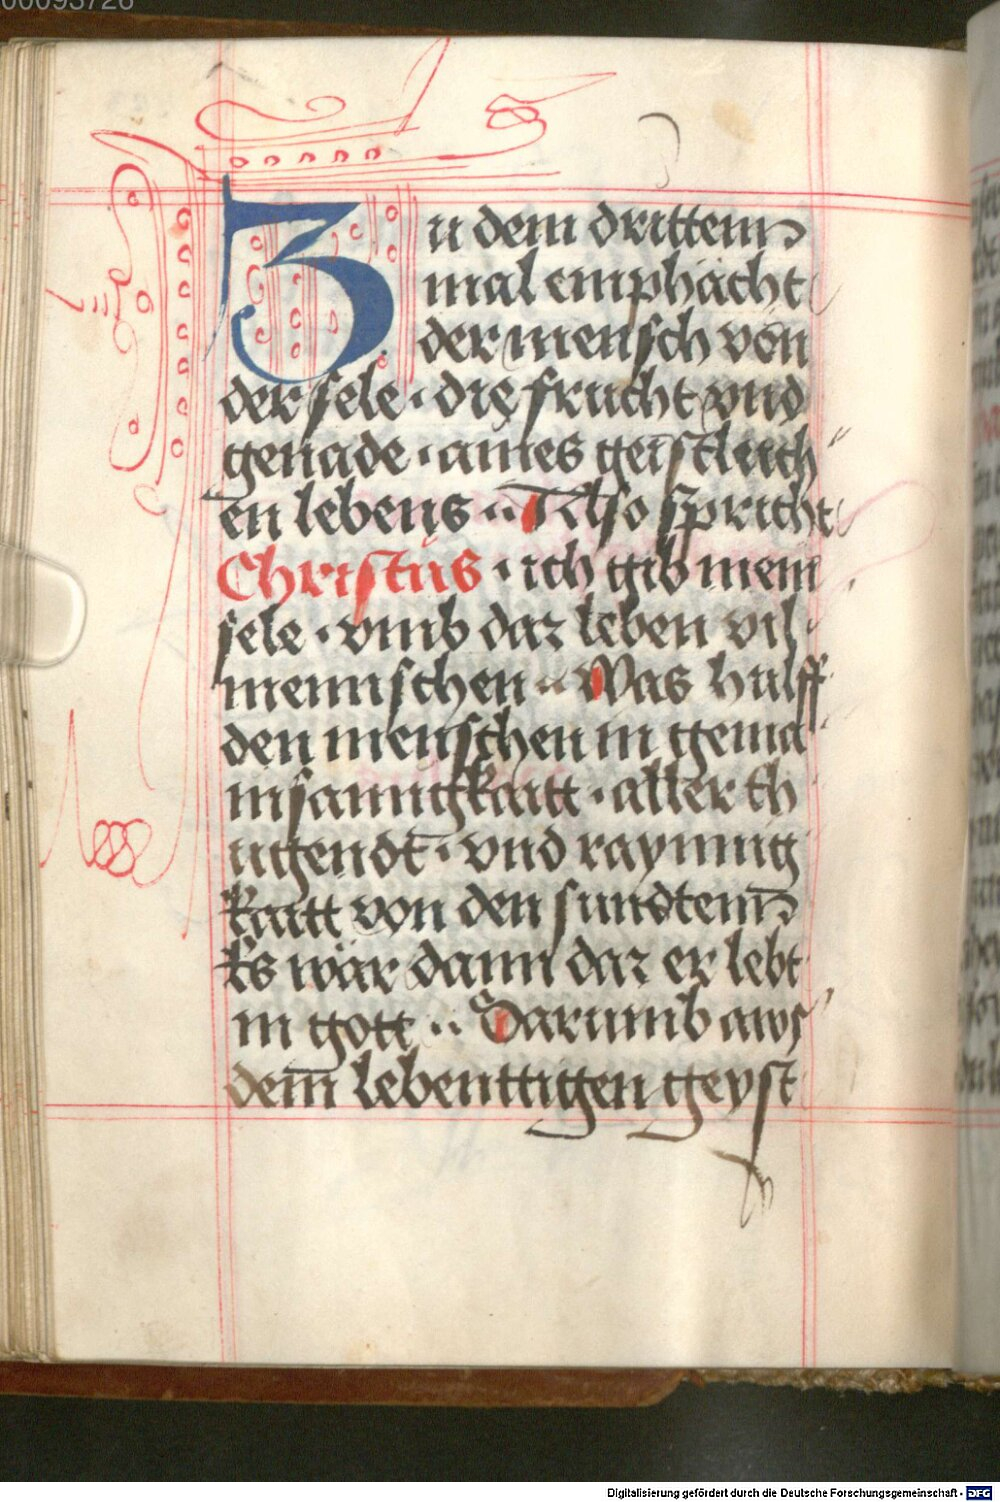 00093726
Zu dem drittem
mal emphächt
der mensch von
der sele · die frucht vnd
genade · aines geistlich
en lebens ·· Also spricht
Christus · ich gib mein
sele · vmb daz leben vil
mennschen ·· Was hulff
den menschen in gema
insamigkaitt · aller th
ugendt · vnd raynnig
kaitt von den sundtenn
Es wär dann daz er lebt
in gott ·· Darumb aws
dem lebenttigen geyst
Digitalisierung gefördert durch die Deutsche Forschungsgemeinschaft - DFG